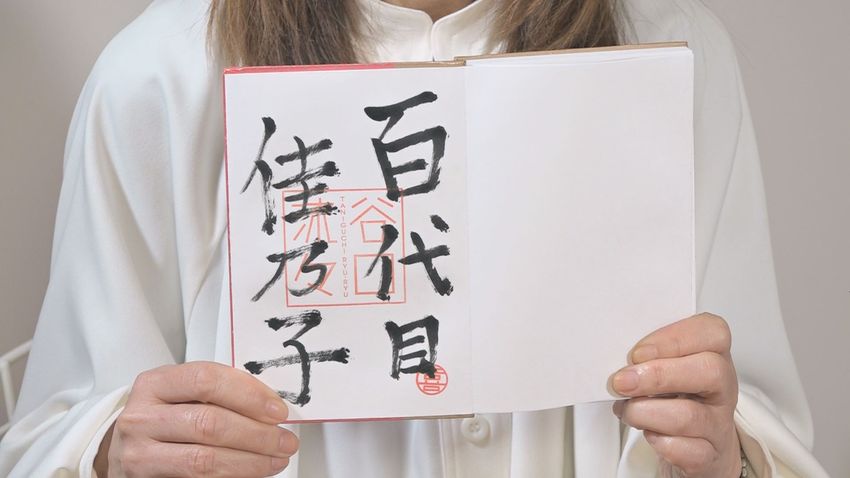 百代目
佳乃子
谷口
流々
TANIGUCHI RYU-RYU